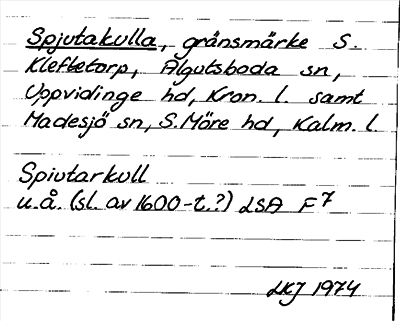 Spjutakulla, gränsmärke S.
Klefketorp, Älgutsboda sn,
Uppvidinge hd, Kron. l. samt
Madesjö sn, S. Möre hd, Kalm. l.
Spiutarkull
u.å. (sl. av 1600-t.?) LSA F 7
LKJ 1974